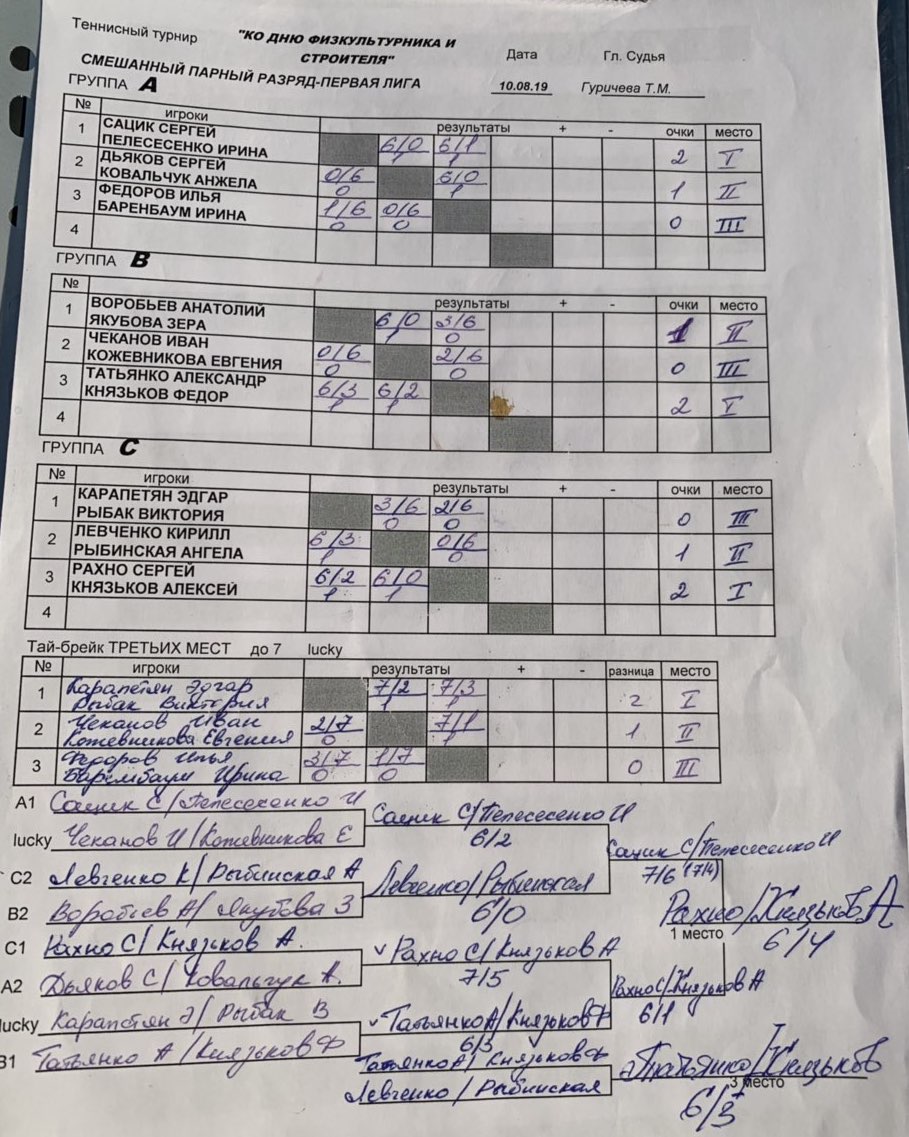 Теннисный турнир "КО ДНЮ ФИЗКУЛЬТУРНИКА И СТРОИТЕЛЯ" Дата Гл. Судья
СМЕШАННЫЙ ПАРНЫЙ РАЗРЯД-ПЕРВАЯ ЛИГА 10.08.19 Гуричева Т.М.
ГРУППА A
№ игроки результаты + - очки место
1 САЦИК СЕРГЕЙ
ПЕЛЕСЕСЕНКО ИРИНА 6/0 1 6/1 1 2 I
2 ДЬЯКОВ СЕРГЕЙ
КОВАЛЬЧУК АНЖЕЛА 0/6 0 6/0 1 1 II
3 ФЕДОРОВ ИЛЬЯ
БАРЕНБАУМ ИРИНА 1/6 0 0/6 0 0 III
4
ГРУППА B
№ результаты + - очки место
1 ВОРОБЬЕВ АНАТОЛИЙ
ЯКУБОВА ЗЕРА 6/0 1 3/6 0 1 II
2 ЧЕКАНОВ ИВАН
КОЖЕВНИКОВА ЕВГЕНИЯ 0/6 0 2/6 0 0 III
3 ТАТЬЯНКО АЛЕКСАНДР
КНЯЗЬКОВ ФЕДОР 6/3 1 6/2 1 2 I
4
ГРУППА C
№ игроки результаты + - очки место
1 КАРАПЕТЯН ЭДГАР
РЫБАК ВИКТОРИЯ 3/6 0 2/6 0 0 III
2 ЛЕВЧЕНКО КИРИЛЛ
РЫБИНСКАЯ АНГЕЛА 6/3 1 0/6 0 1 II
3 РАХНО СЕРГЕЙ
КНЯЗЬКОВ АЛЕКСЕЙ 6/2 1 6/0 1 2 I
4
Тай-брейк ТРЕТЬИХ МЕСТ до 7 lucky
№ игроки результаты + - разница место
1 Карапетян Эдгар
Рыбак Виктория 7/2 1 7/3 1 2 I
2 Чеканов Иван
Кожевникова Евгения 2/7 0 7/1 1 1 II
3 Федоров Илья
Барембаум Ирина 3/7 0 1/7 0 0 III
A1 Сацик С/Пелесесенко И
Сацик С/Пелесесенко И
6/2
lucky Чеканов И/Кожевникова Е
Сацик С/Пелесесенко И
7/6 (7/4)
C2 Левченко К/Рыбинская А
Левченко/Рыбинская
6/0
B2 Воробьев А/Якубова З
Рахно/Князьков А
1 место
6/4
C1 Рахно С/Князьков А.
Рахно С/Князьков А
7/5
A2 Дьяков С/Ковальчук А.
Рахно С/Князьков А
6/1
lucky Карапетян Э/Рыбак В
Татьянко А/Князьков Ф
6/3
B1 Татьянко А/Князьков Ф
Татьянко А/Князьков Ф
Татьянко/Князьков
3 место
Левченко/Рыбинская
6/3